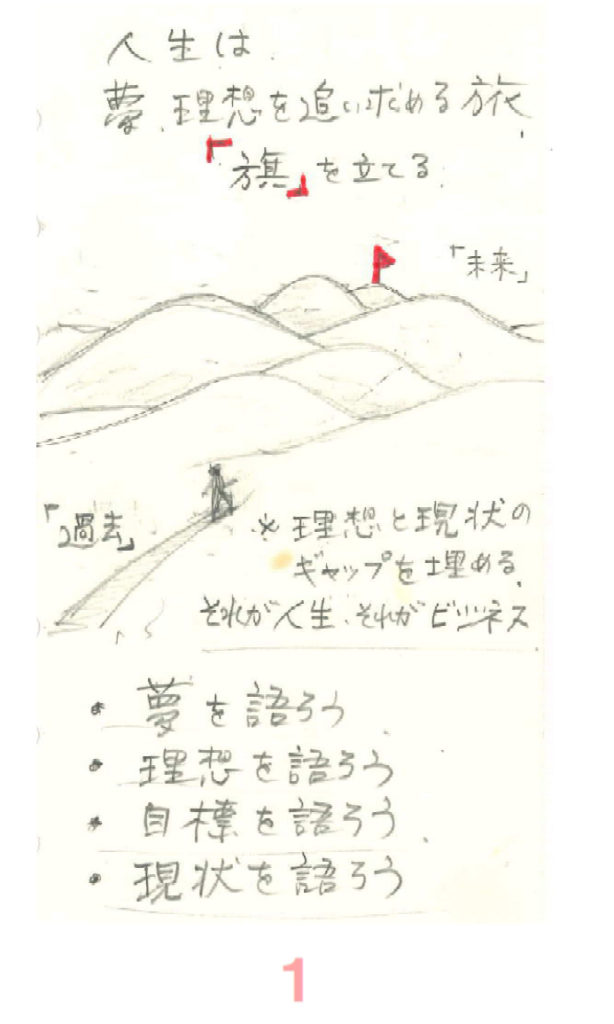 人生は
夢、理想を追い求める旅、
「旗」を立てる
「未来」
「過去」
※理想と現状の
ギャップを埋める、
それが人生、それがビジネス
・夢を語ろう
・理想を語ろう
・目標を語ろう
・現状を語ろう
1